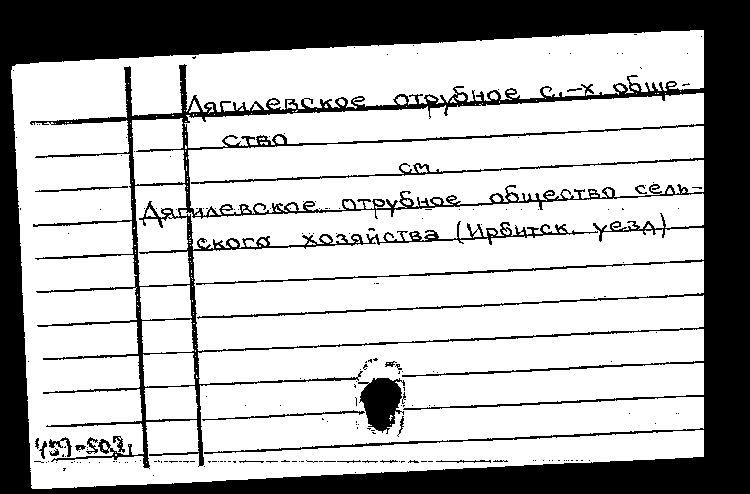 Дягилевское отрубное с.-х. обще-
ство
см.
Дягилевское отрубное общество сель-
ского хозяйства (Ирбитск. уезд)